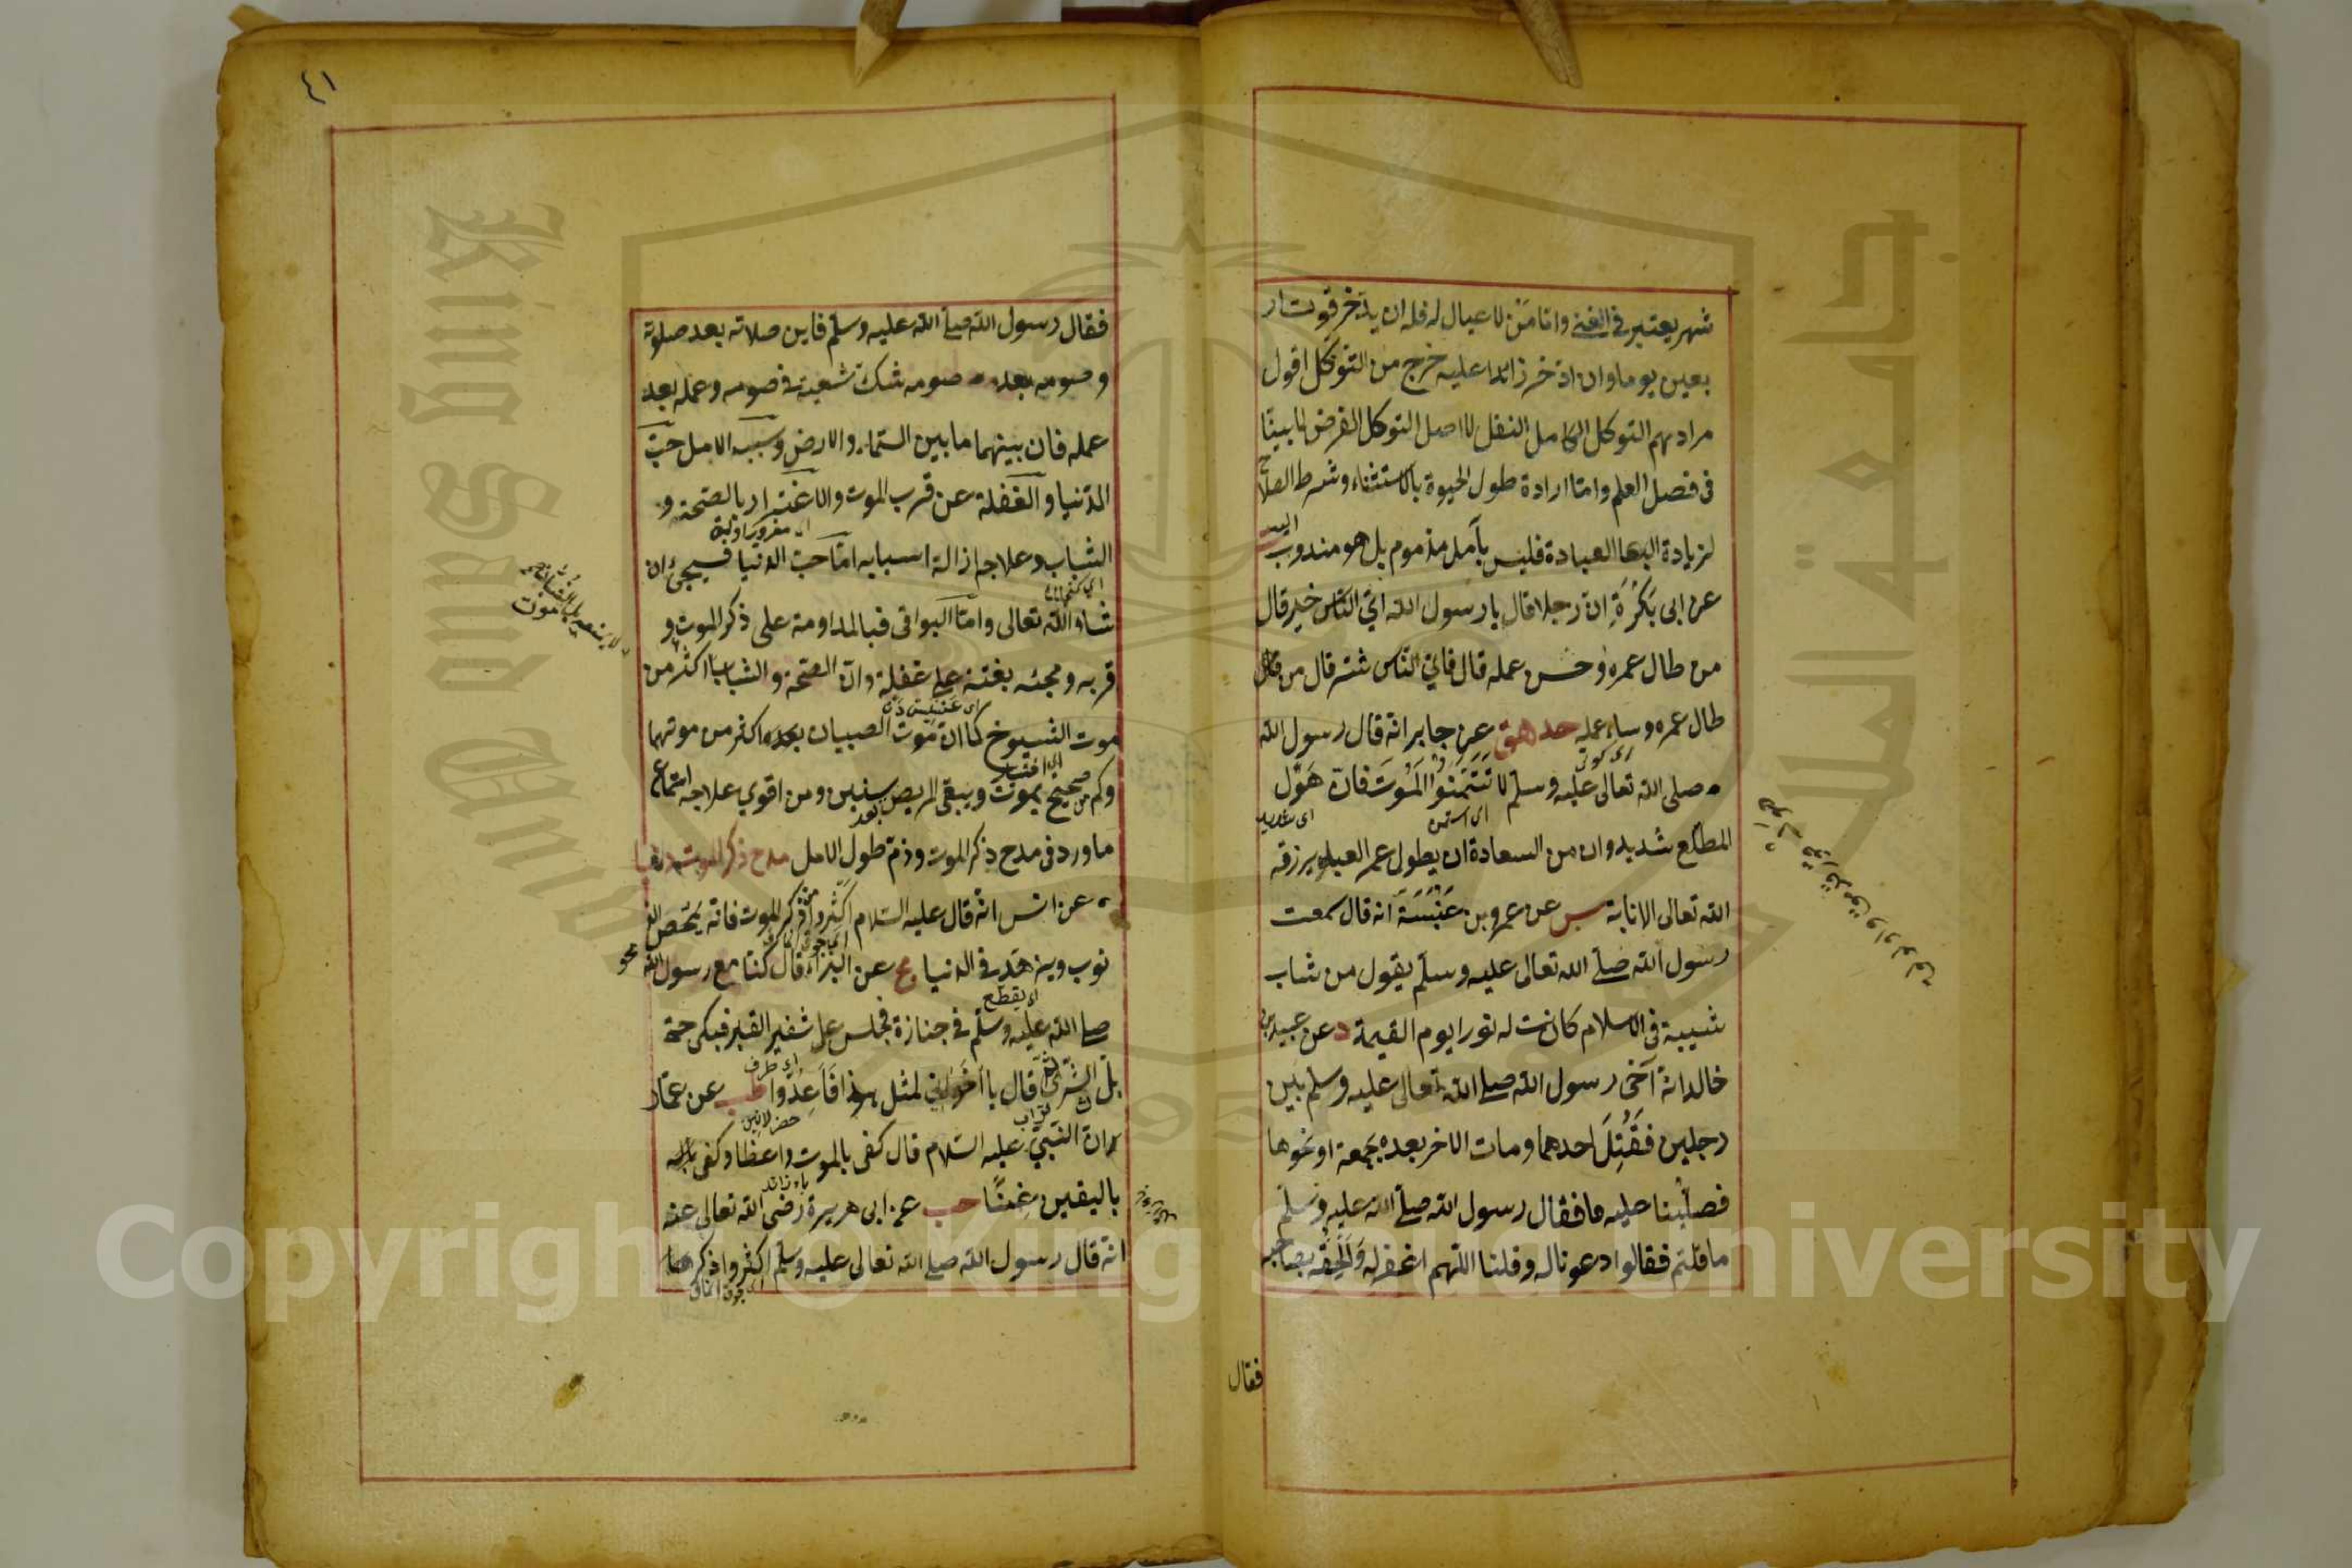 شهر يعتبر في الغنى واما من لا عيال له فله ان يدّخر قوت ار
بعين يوما وان ادّخر زائدا عليه خرج من التوكل اقول
مرادهم التوكل الكامل النفل لا اصل التوكل الفرض لما بينّا
في فصل العلم واما ارادة طول الحيوة بالاستثناء وشرط الصلاح
لزيادة العبادة فليس بأمل مذموم بل هو مندوب اليه
عن ابى بَكْرَةَ انّ رجلا قال يا رسول الله اىّ النّاس خير قال
من طال عمره وحسن عمله قال فاىّ النّاس شر قال من
طال عمره وساء عمله حد هق عن جابر انه قال رسول الله
صلى الله تعالى عليه وسلم لا تَتَمَنَّوُا الْمَوْتَ فانّ هَوْل
المطلع شديد وان من السعادة ان يطول عمر العبد ويرزقه
الله تعالى الانابة س عن عمرو بن عَنْبَسَةَ انه قال سمعت
رسول الله صلى الله تعالى عليه وسلم يقول من شاب
شيبة فى الاسلام كانت له نورا يوم القيمة د عن عبيد بن
خالد انه آخى رسول الله صلى الله تعالى عليه وسلم بين
رجلين فَقُتِلَ احدهما ومات الاخر بعده بجمعة او نحوها
فصلّينا عليه فقال رسول الله صلى الله عليه وسلم
ما قلتم فقالوا دعونا له وقلنا اللهم اغفر له وَاَلْحِقْه بصاحبه
فقال
٤١
فقال رسول الله صلى الله عليه وسلم فاين صلاته بعد صلوته
وصومه بعد صومه شك شعبة فى صومه وعمله بعد
عمله فان بينهما ما بين السّماء والارض وسبب الامل حبّ
الدّنيا والغفلة عن قرب الموت والاغترار بالصّحة و
الشباب وعلاجه ازالة اسبابه امّا حبّ الدنيا فسيجئ ان
شاء الله تعالى وامّا البواقى فبالمداومة على ذكر الموت و
قربه ومجئه بغتة على غفلة وانّ الصّحة والشباب اكثر من
موت الشيوخ كما انّ موت الصبيان اكثر من موتهما
وكم من صحيح يموت ويبقى المريض بعده سنين ومن اقوى علاجه استماع
ما ورد فى مدح ذكر الموت وذمّ طول الامل مدح ذكر الموت دنيا
عن انس انه قال عليه السّلام اَكْثِروا ذكر الموت فانه يُمَحّص الذ
نوب ويزهّد فى الدنيا مج عن البراء قال كنّا مع رسول الله
صلى الله عليه وسلّم فى جنازة فجلس على شفير القبر فبكى حتى
بلّ الثّرى ثم قال يا اخوانى لمثل هذا فَاَعِدّوا طب عن عمّار
انّ النّبىّ عليه السّلام قال كفى بالموت واعظا وكفى
باليقين غِنًا حب عن ابى هريرة رضى الله تعالى عنه
انه قال رسول الله صلى الله تعالى عليه وسلم اكثروا ذكر
محو
Copyright © King Saud University
King Saud University
جامعة الملك سعود